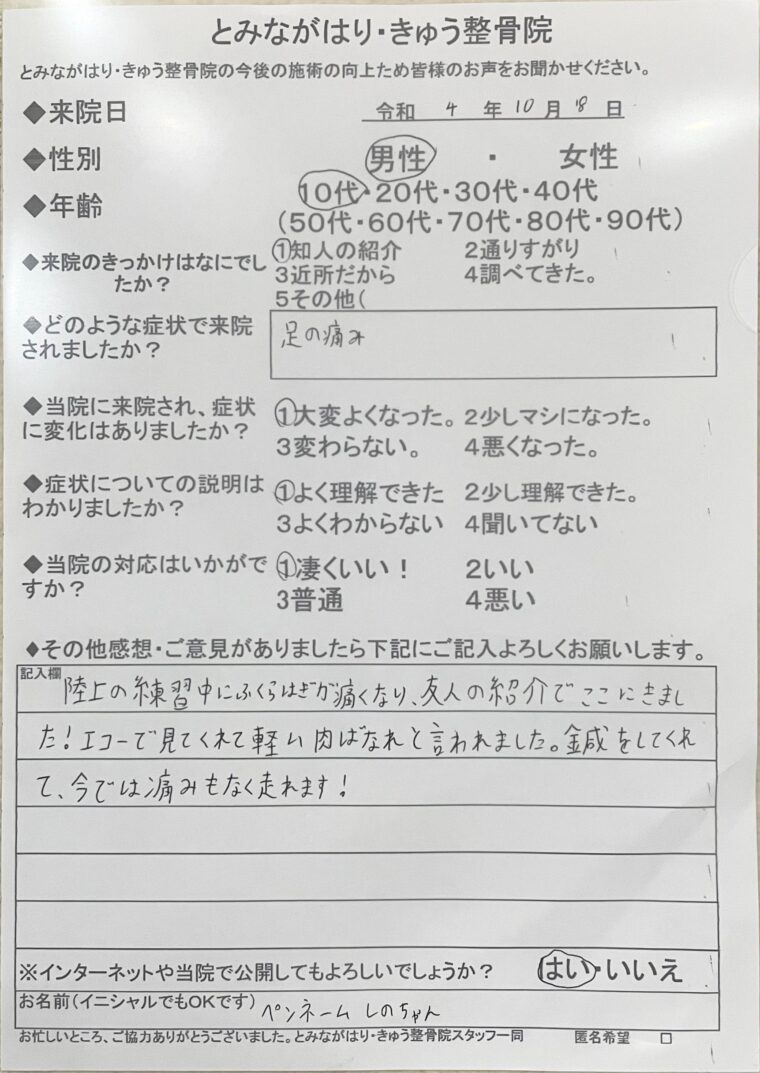 とみながはり・きゅう整骨院
とみながはり・きゅう整骨院の今後の施術の向上ため皆様のお声をお聞かせください。
◆来院日 令和 4 年 10 月 18 日
◆性別 男性 ・ 女性
◆年齢 10代・20代・30代・40代
(50代・60代・70代・80代・90代)
◆来院のきっかけはなにでし
たか?
①知人の紹介 2通りすがり
3近所だから 4調べてきた。
5その他(
◆どのような症状で来院
されましたか?
足の痛み
◆当院に来院され、症状
に変化はありましたか?
①大変よくなった。 2少しマシになった。
3変わらない。 4悪くなった。
◆症状についての説明は
わかりましたか?
①よく理解できた 2少し理解できた。
3よくわからない 4聞いてない
◆当院の対応はいかがで
すか?
①凄くいい! 2いい
3普通 4悪い
◆その他感想・ご意見がありましたら下記にご記入よろしくお願いします。
記入欄
陸上の練習中にふくらはぎが痛くなり、友人の紹介でここにきまし
た!エコーで見てくれて軽い肉ばなれと言われました。鍼をしてくれ
て、今では痛みもなく走れます!
※インターネットや当院で公開してもよろしいでしょうか? はい・いいえ
お名前(イニシャルでもOKです) ペンネーム しのちゃん
お忙しいところ、ご協力ありがとうございました。とみながはり・きゅう整骨院スタッフ一同 匿名希望 □